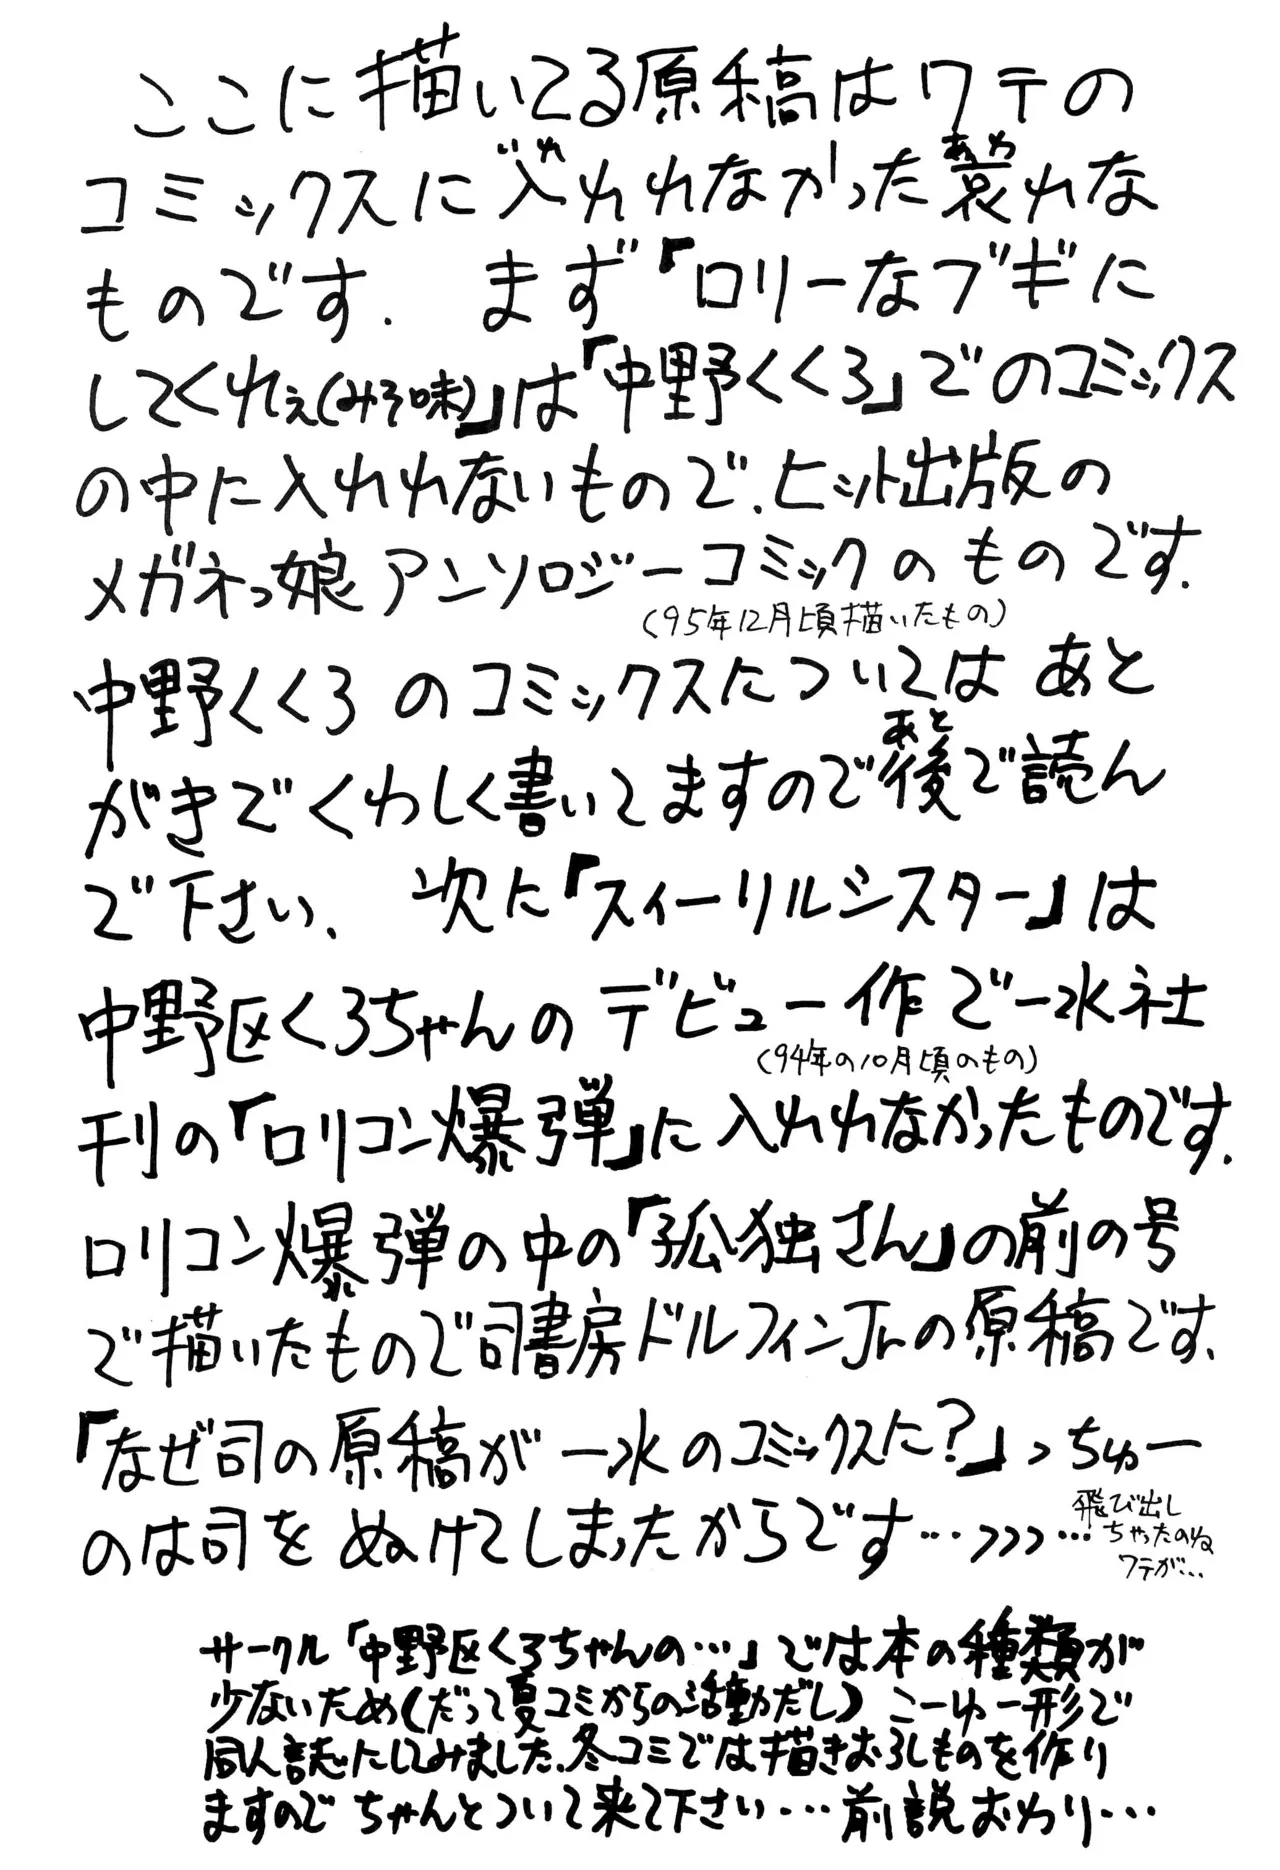 ここに描いてる原稿はワテの
コミックスに入れれなかった哀れな
ものです. まず「ロリーなブギに
してくれぇ(みそ味)」は「中野くくろ」でのコミックス
の中に入れれないもので、ヒット出版の
メガネっ娘アンソロジーコミックのものです.
(95年12月頃描いたもの)
中野くくろのコミックスについてはあと
がきでくわしく書いてますので後で読ん
で下さい、 次に「スィーリルシスター」は
中野区くろちゃんのデビュー作で一水社
(94年の10月頃のもの)
刊の「ロリコン爆弾」に入れれなかったものです.
ロリコン爆弾の中の「孤独さん」の前の号
で描いたもので司書房ドルフィンJrの原稿です、
「なぜ司の原稿が一水のコミックスに?」っちゅー
のは司をぬけてしまったからです…>>>…
飛び出し
ちゃったのね
ワテが…
サークル「中野区くろちゃんの…」では本の種類が
少ないため(だって夏コミからの活動だし)こーゆー形で
同人誌にしてみました、冬コミでは描きおろしものを作り
ますのでちゃんとついて来て下さい…前説おわり…